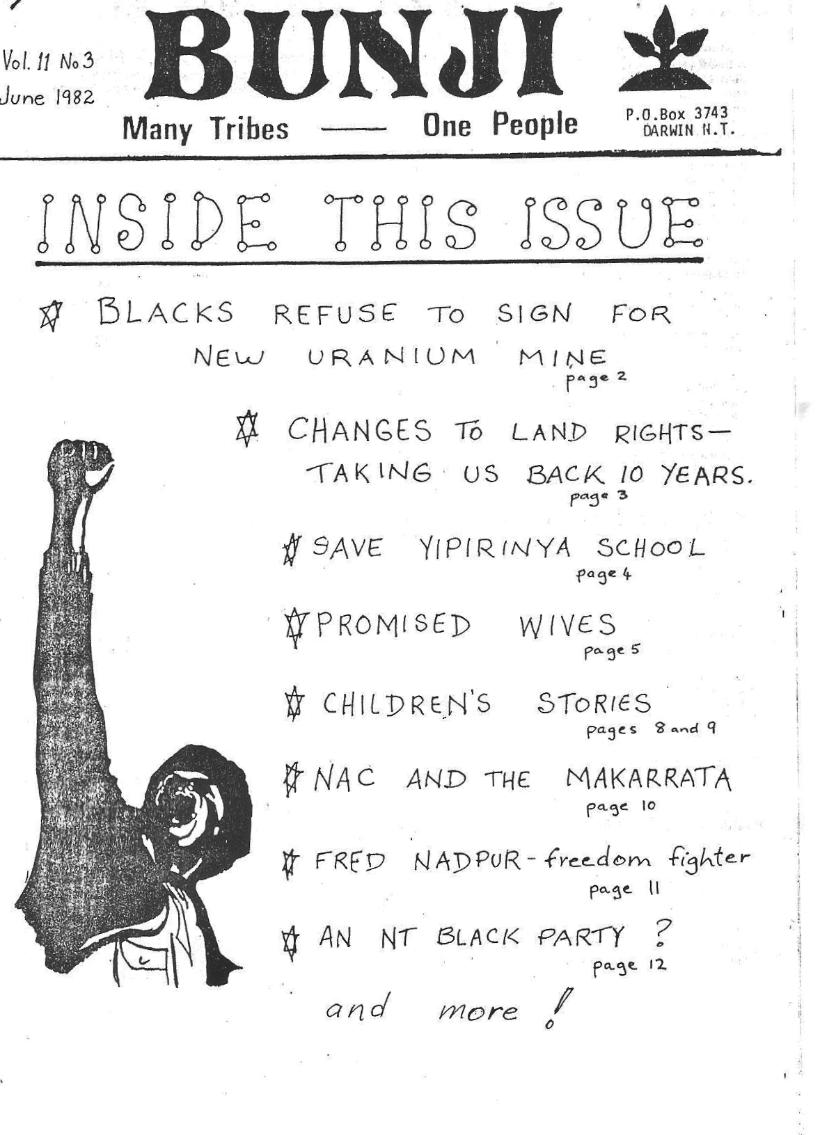 Vol. 11 No 3
June 1982
BUNJI
Many Tribes — One People
P.O.Box 3743
DARWIN N.T.
INSIDE THIS ISSUE
BLACKS REFUSE TO SIGN FOR
NEW URANIUM MINE
page 2
CHANGES TO LAND RIGHTS—
TAKING US BACK 10 YEARS.
page 3
SAVE YIPIRINYA SCHOOL
page 4
PROMISED WIVES
page 5
CHILDREN'S STORIES
pages 8 and 9
NAC AND THE MAKARRATA
page 10
FRED NADPUR - freedom fighter
page 11
AN NT BLACK PARTY ?
page 12
and more !